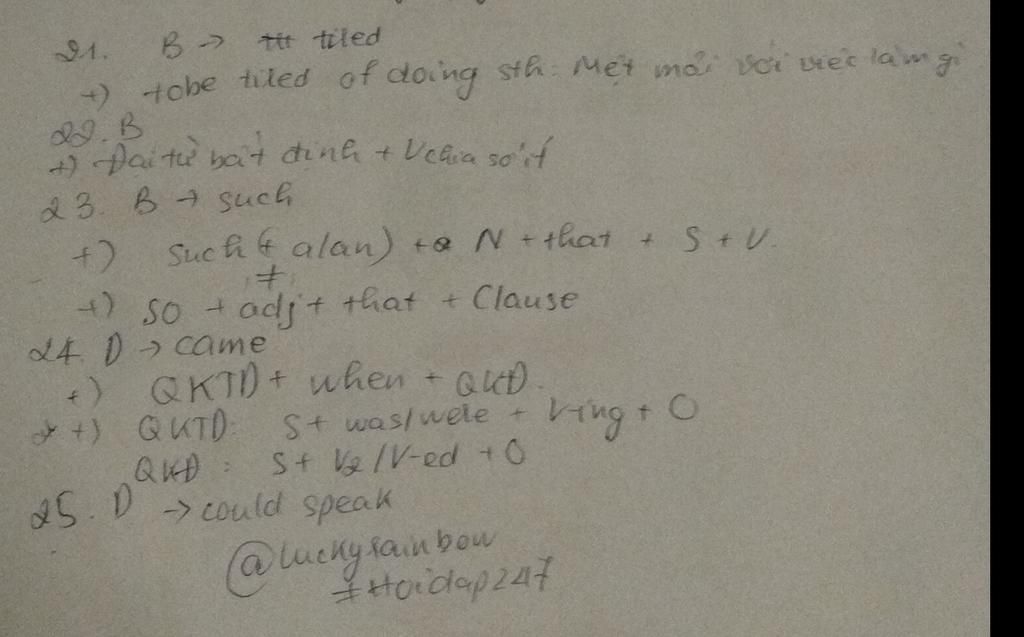 21. B → tiled
+) tobe tiled of doing sth: Mệt mỏi với việc làm gì
22. B
+) Đại từ bất định + V chia số ít
23. B → such
+) such (+ a/an) + N + that + S + V.
≠
+) so + adj + that + Clause
24. D → came
+) QKTD + when + QKD.
+) QKTD: S + was/were + V-ing + O
QKD : S + V2/V-ed + O
25. D → could speak
@luckyrainbow
#Hoidap247